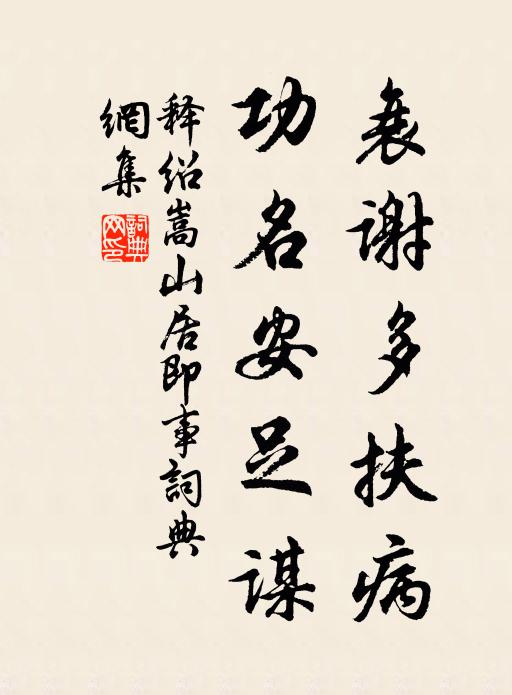 衰谢多扶病
功名安足谋
释绍嵩山居即事詞典
網集
詞典
网印